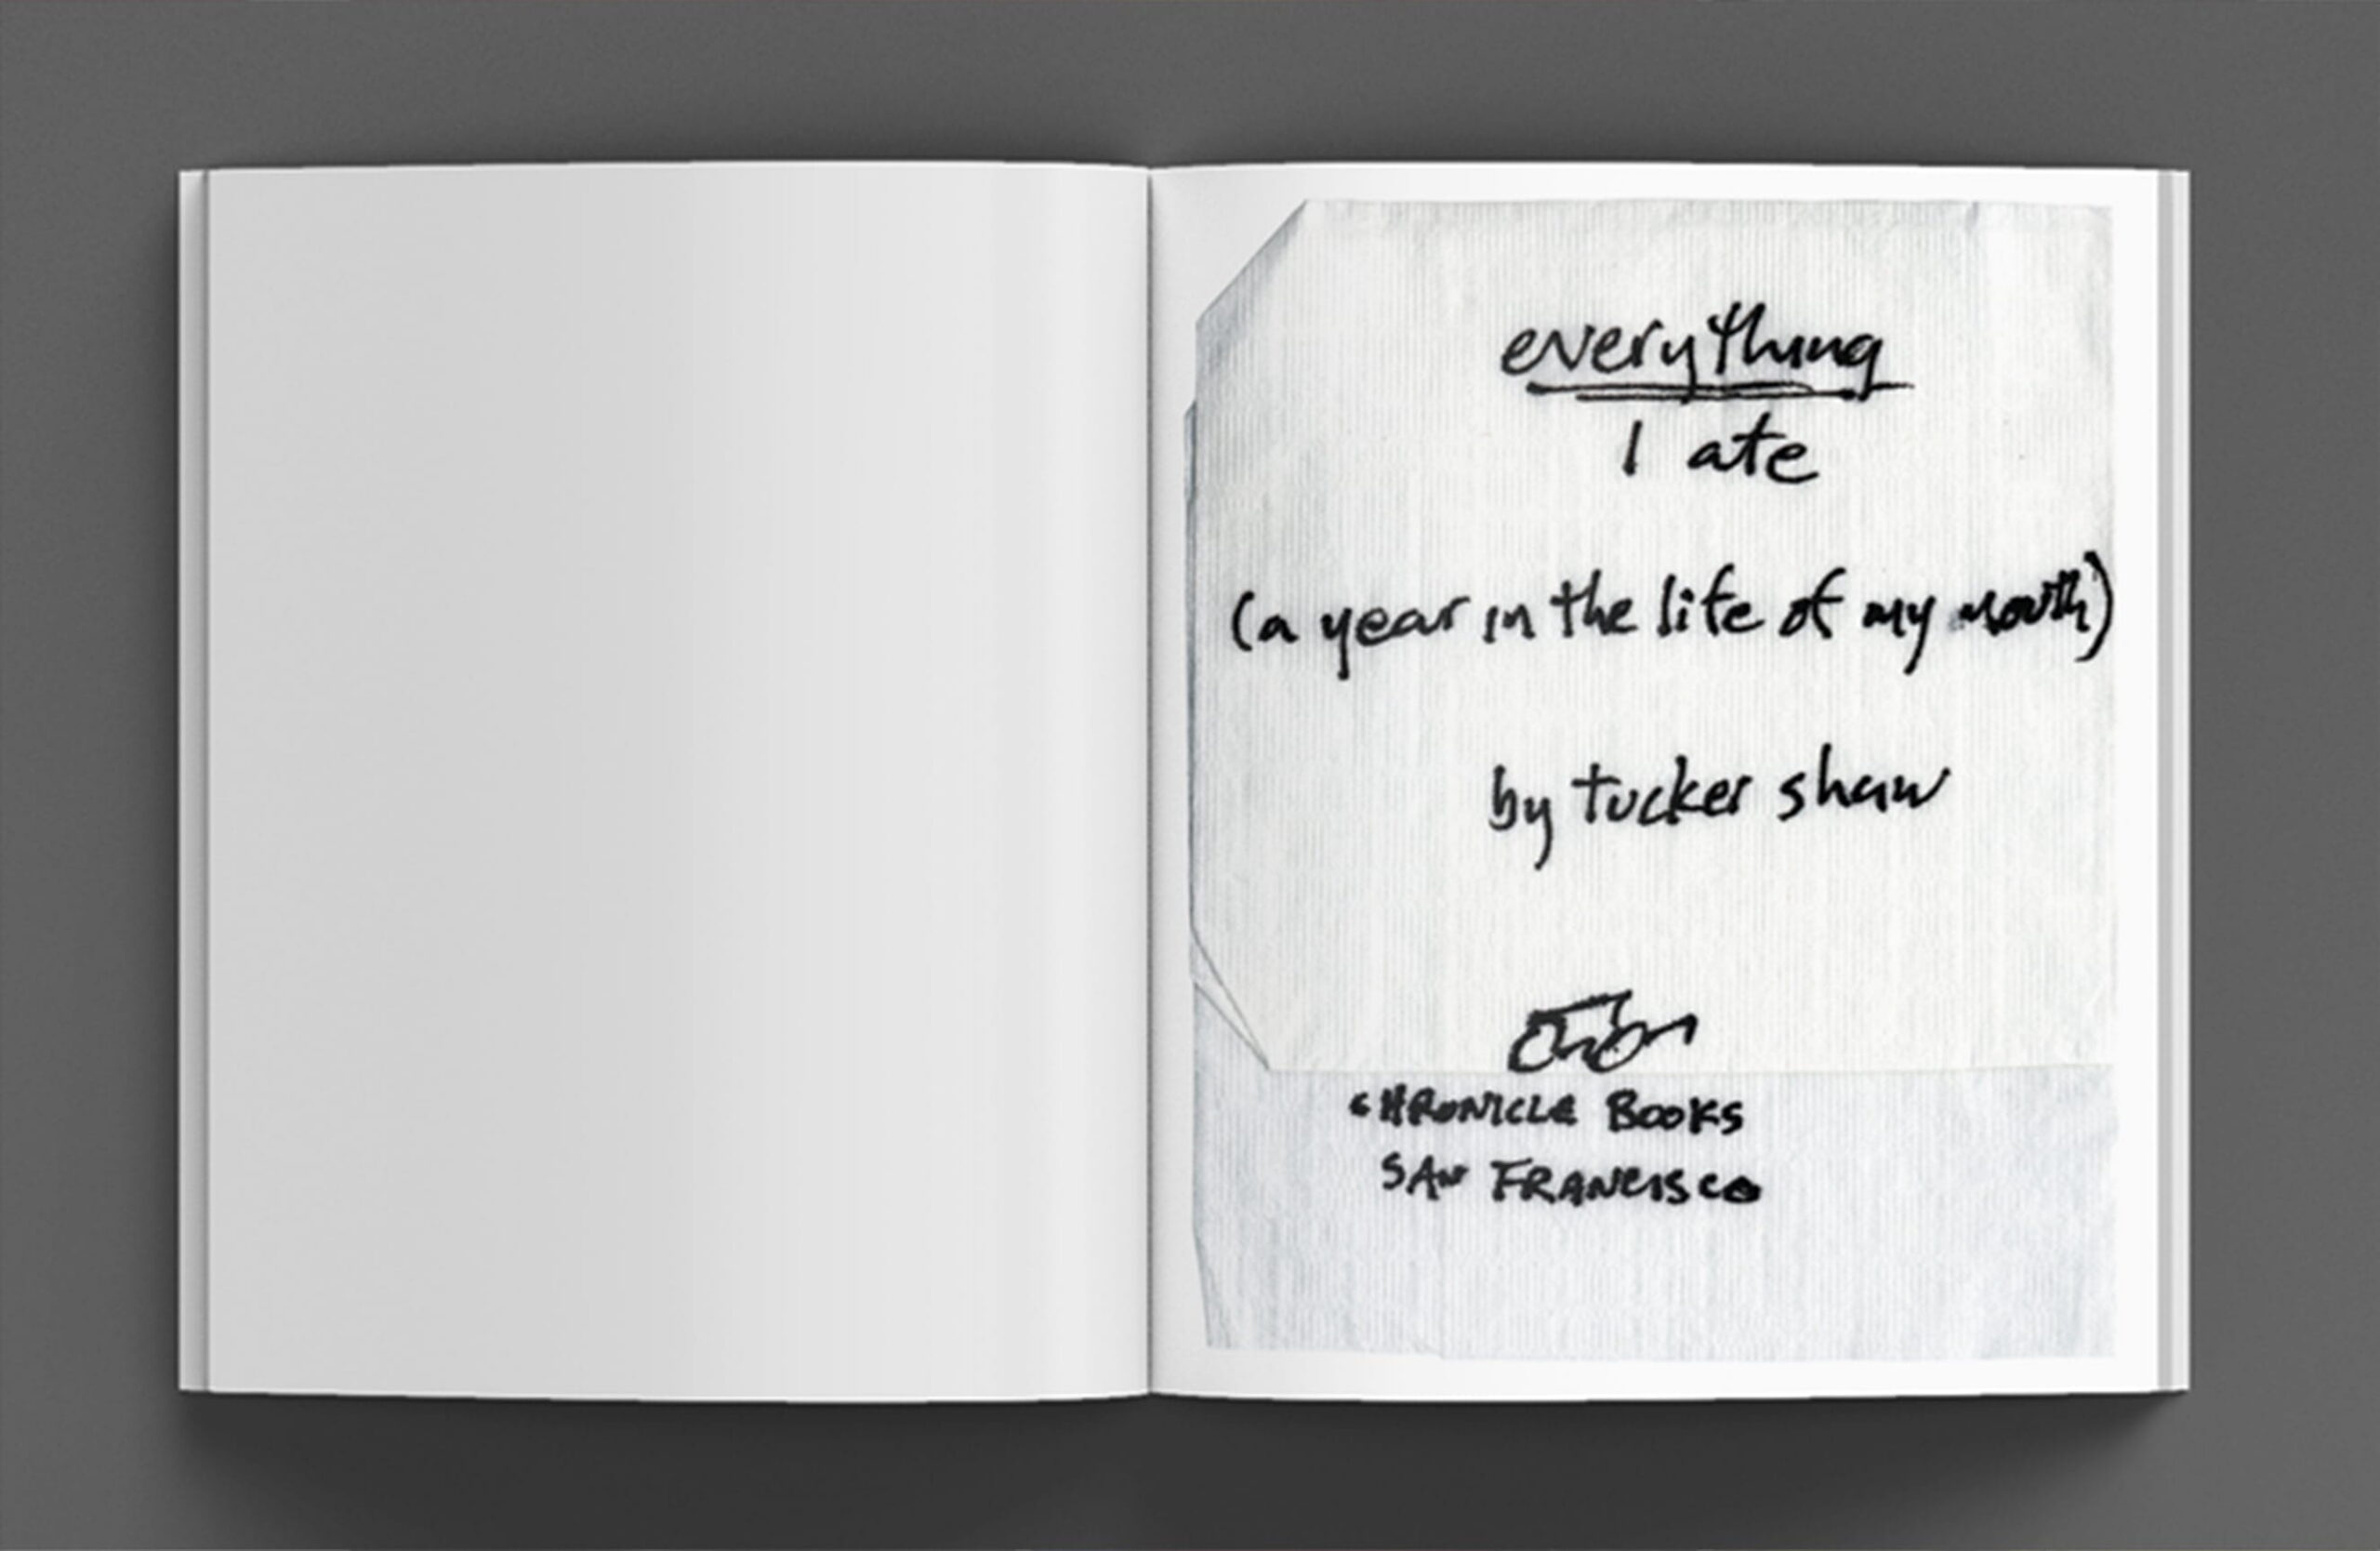 everything
I ate
(a year in the life of my mouth)
by tucker shaw
CHRONICLE BOOKS
SAN FRANCISCO